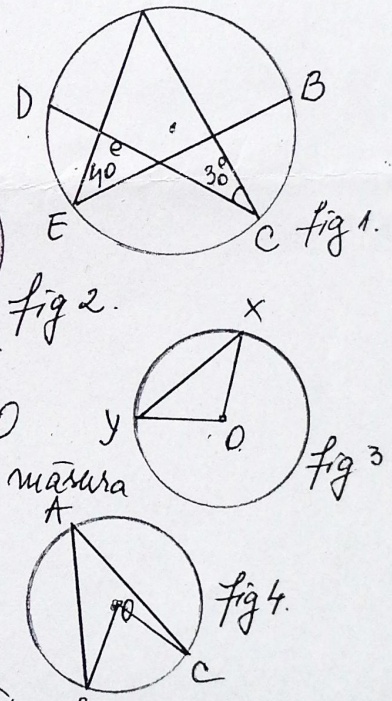 D
B
40°
30°
E
C
fig 1.
fig 2.
X
Y
O
fig 3
măsura
A
O
fig 4.
C